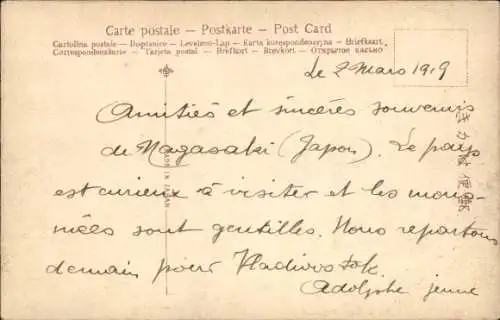 Carte postale — Postkarte — Post Card
Cartolina postale — Dopisnice — Levelezo-Lap — Karta korespondencyjna — Briefkaart
Correspondenzkarte — Tarjeta postal — Brefkort — Brevkort — Открытое письмо
Le 2 Mars 1919
Amitiés et sincères souvenirs
de Nagasaki (Japon). Le pays
est curieux à visiter et les mous-
mées sont gentilles. Nous repartons
demain pour Vladivostok.
Adolphe jeune
MADE IN JAPAN
きがは便郵